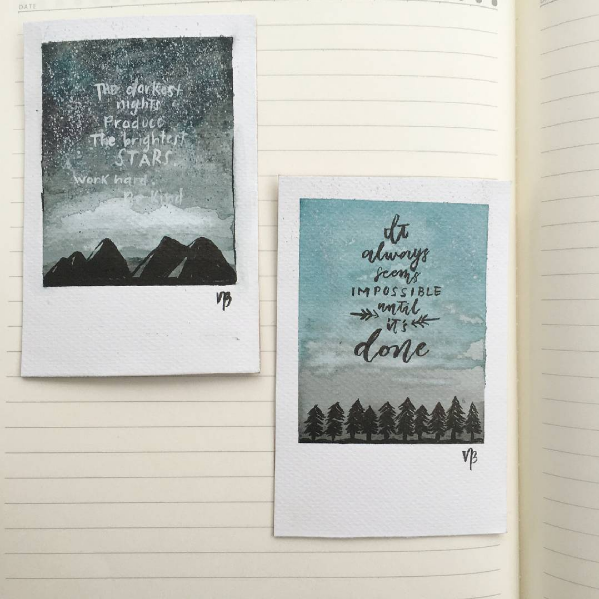 DATE
THE darkest
nights
Produce
The brightest
STARS
work hard.
Be Kind
VB
It
always
seems
IMPOSSIBLE
until
it's
done
VB